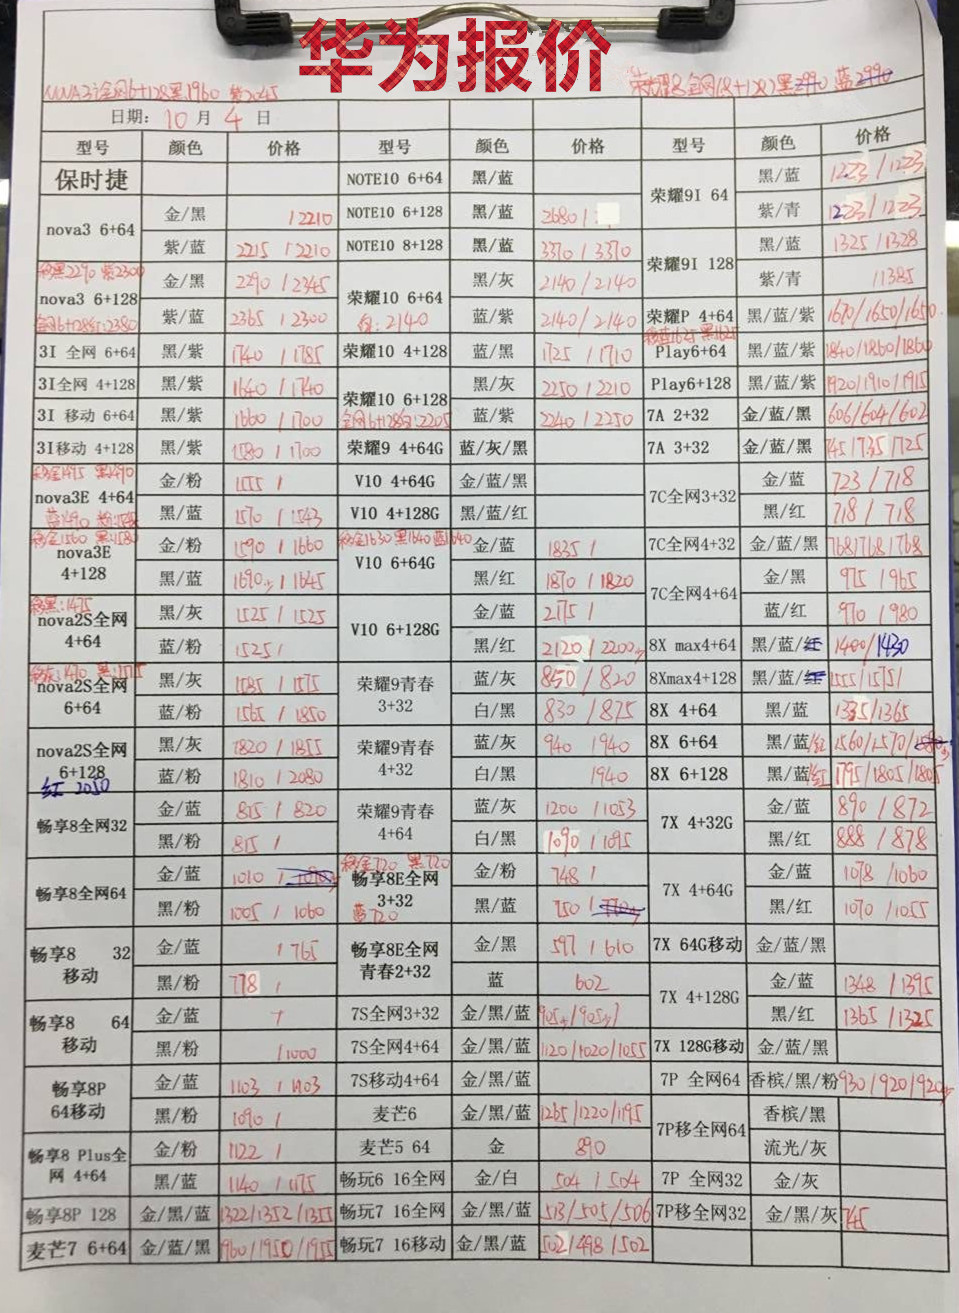 华为报价
NOVA3i全网6+128黑1960 紫2045
荣耀8全网(8+128)黑2990 蓝2990
日期: 10 月 4 日
型号 颜色 价格 型号 颜色 价格 型号 颜色 价格
保时捷
nova3 6+64 金/黑 /2210
紫/蓝 2215 /2210
移黑2290 紫2300
nova3 6+128 金/黑 2290 /2345
紫/蓝 2365 /2300
全网6+128红:2380
3I 全网 6+64 黑/紫 1740 /1785
3I全网 4+128 黑/紫 1640 /1740
3I 移动 6+64 黑/紫 1600 /1700
3I移动 4+128 黑/紫 1580 /1700
移金1495 黑1490
nova3E 4+64 金/粉 1555 /
黑/蓝 1570 /1543
移金1560 黑:1580
nova3E 4+128 金/粉 1590 /1660
黑/蓝 1690 /1645
移黑:1475
nova2S全网 4+64 黑/灰 1525 /1525
蓝/粉 1525/
nova2S全网 6+64 黑/灰 1535 /1575
蓝/粉 1565 /1850
nova2S全网 6+128 黑/灰 1820 /1855
蓝/粉 1810 /2080
红 2050
畅享8全网32 金/蓝 815 /820
黑/粉 815 /
畅享8全网64 金/蓝 1010 /
黑/粉 1005 /1060
畅享8 32 移动 金/蓝 /765
黑/粉 778 /
畅享8 64 移动 金/蓝
黑/粉 /1000
畅享8P 64移动 金/蓝 1103 /1103
黑/粉 1090 /
畅享8 Plus全网 4+64 金/粉 1122 /
黑/蓝 1140 /1175
畅享8P 128 金/黑/蓝 1322/1352/1355
麦芒7 6+64 金/蓝/黑 1960/1950/1955
NOTE10 6+64 黑/蓝
NOTE10 6+128 黑/蓝 2680 /
NOTE10 8+128 黑/蓝 3370 /3370
荣耀10 6+64 黑/灰 2140 /2140
白:2140
蓝/紫 2140/2140
荣耀10 4+128 蓝/黑 1725 /1710
荣耀10 6+128 黑/灰 2250 /2210
全网6+128白:2205
蓝/紫 2240 /2250
荣耀9 4+64G 蓝/灰/黑
V10 4+64G 金/蓝/黑
V10 4+128G 黑/蓝/红
移金1630 黑1640 蓝1640
V10 6+64G 金/蓝 1835 /
黑/红 1870 /1820
V10 6+128G 金/蓝 2175 /
黑/红 2120 /2200
荣耀9青春 3+32 蓝/灰 850 /820
白/黑 830 /875
荣耀9青春 4+32 蓝/灰 940 /940
白/黑 /940
荣耀9青春 4+64 蓝/灰 1200 /1053
白/黑 1090 /1095
移金720 黑720
畅享8E全网 3+32 金/粉 748 /
蓝720
黑/蓝 750 /
畅享8E全网 青春2+32 金/黑 597 /610
蓝 602
7S全网3+32 金/黑/蓝 905/905/
7S全网4+64 金/黑/蓝 1120/1020/1055
7S移动4+64 金/黑/蓝
麦芒6 金/黑/蓝 1265/1220/1195
麦芒5 64 金 890
畅玩6 16全网 金/白 504 /504
畅玩7 16全网 金/黑/蓝 513/505/506
畅玩7 16移动 金/黑/蓝 502/498/502
荣耀9I 64 黑/蓝 1223/1223
紫/青 1223/1223
荣耀9I 128 黑/蓝 1325 /1328
紫/青 /1385
荣耀P 4+64 黑/蓝/紫 1670/1650/1650
移蓝1625 黑1625
Play6+64 黑/蓝/紫 1840/1860/1860
Play6+128 黑/蓝/紫 1920/1910/1915
7A 2+32 金/蓝/黑 606/604/602
7A 3+32 金/蓝/黑 745/735/725
7C全网3+32 金/蓝 723 /718
黑/红 718 /718
7C全网4+32 金/蓝/黑 768/768/768
7C全网4+64 金/黑 975 /965
蓝/红 970 /980
8X max4+64 黑/蓝/红 1400/1430
8Xmax4+128 黑/蓝/红 1555/1575/
8X 4+64 黑/蓝 1335/1365
8X 6+64 黑/蓝/红 1560/1570/
8X 6+128 黑/蓝/红 1795/1805/1805
7X 4+32G 金/蓝 890 /872
黑/红 888 /878
7X 4+64G 金/蓝 1078 /1060
黑/红 1070 /1055
7X 64G移动 金/蓝/黑
7X 4+128G 金/蓝 1348 /1395
黑/红 1365 /1325
7X 128G移动 金/蓝/黑
7P 全网64 香槟/黑/粉 930/920/920
7P移全网64 香槟/黑
流光/灰
7P 全网32 金/灰
7P移全网32 金/黑/灰 745